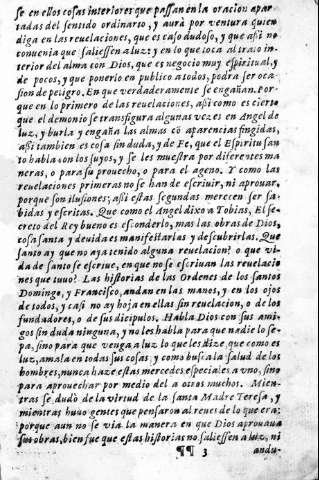 se en ellos cosas interiores que passan en la oracion apar
tadas del sentido ordinario, y aurà por ventura quien
diga en las reuelaciones, que es caso dudoso, y que assi no
conuenia que saliessen a luz: y en lo que toca al trato inte
rior del alma con Dios, que es negocio muy espiritual, y
de pocos, y que ponerlo en publico a todos, podra ser oca
sion de peligro. En que verdaderamente se engañan. Por
que en lo primero de las reuelaciones, assi como es cierto
que el demonio se transfigura algunas vezes en Angel de
luz, y burla y engaña las almas cō aparencias fingidas,
assi tambien es cosa sin duda, y de Fe, que el Espiritu san
to habla con los suyos, y se les muestra por diferentes ma
neras, o para su prouecho, o para el ageno. Y como las
reuelaciones primeras no se han de escriuir, ni aprouar,
porque son ilusiones; assi estas segundas merecen ser sa
bidas y escritas. Que como el Angel dixo a Tobias, El se
creto del Rey bueno es esconderlo, mas las obras de Dios,
cosa santa y deuida es manifestarlas y descubrirlas. Que
santo ay que no aya tenido alguna reuelacion? o que vi
da de santo se escriue, en que no se escriuan las reuelacio
nes que tuuo? Las historias de las Ordenes de los santos
Domingo, y Francisco, andan en las manos, y en los ojos
de todos, y casi no ay hoja en ellas sin reuelacion, o de los
fundadores, o de sus dicipulos. Habla Dios con sus ami
gos sin duda ninguna, y no les habla para que nadie lo se-
pa, sino para que venga a luz lo que les dize, que como es
luz, amala en todas sus cosas; y como busca la salud de los
hombres, nunca haze estas mercedes especiales a vno, sino
para aprouechar por medio del a otros muchos. Mien-
tras se dudò de la virtud de la santa Madre Teresa, y
mientras huuo gentes que pensaron al reues de lo que era:
porque aun no se via la manera en que Dios aprouaua
sus obras, bien fue que estas historias no saliessen a luz, ni
¶¶ 3 andu-